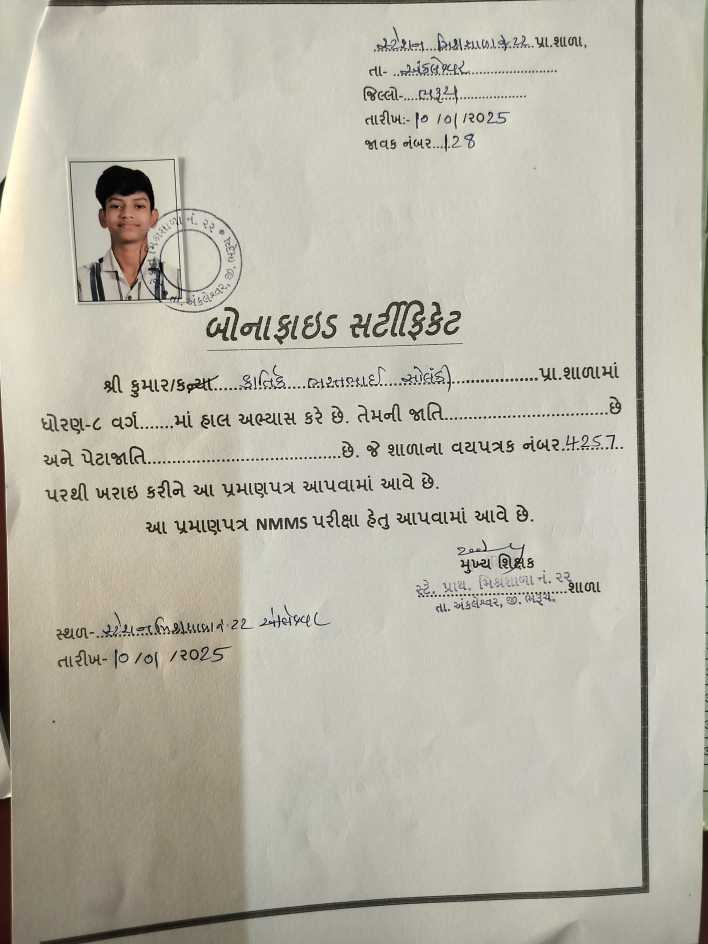 સ્ટેશન મિશ્રશાળા નં.૨૨ પ્રા.શાળા,
તા- અંકલેશ્વર
જિલ્લો- ભરૂચ
તારીખ:- 10/01/2025
જાવક નંબર...128
બોનાફાઇડ સર્ટીફિકેટ
શ્રી કુમાર/કન્યા.....કાર્તિક ભરતભાઈ સોલંકી..................પ્રા.શાળામાં
ધોરણ-૮ વર્ગ.......માં હાલ અભ્યાસ કરે છે. તેમની જાતિ..............................છે
અને પેટાજાતિ....................................છે. જે શાળાના વયપત્રક નંબર.4257..
પરથી ખરાઇ કરીને આ પ્રમાણપત્ર આપવામાં આવે છે.
આ પ્રમાણપત્ર NMMS પરીક્ષા હેતુ આપવામાં આવે છે.
મુખ્ય શિક્ષક
સ્ટે. પ્રાથ. મિશ્રશાળા નં. ૨૨ શાળા
તા. અંકલેશ્વર, જી. ભરૂચ.
સ્થળ- સ્ટેશન મિશ્રશાળા નં.22 અંકલેશ્વર
તારીખ- 10/01/2025